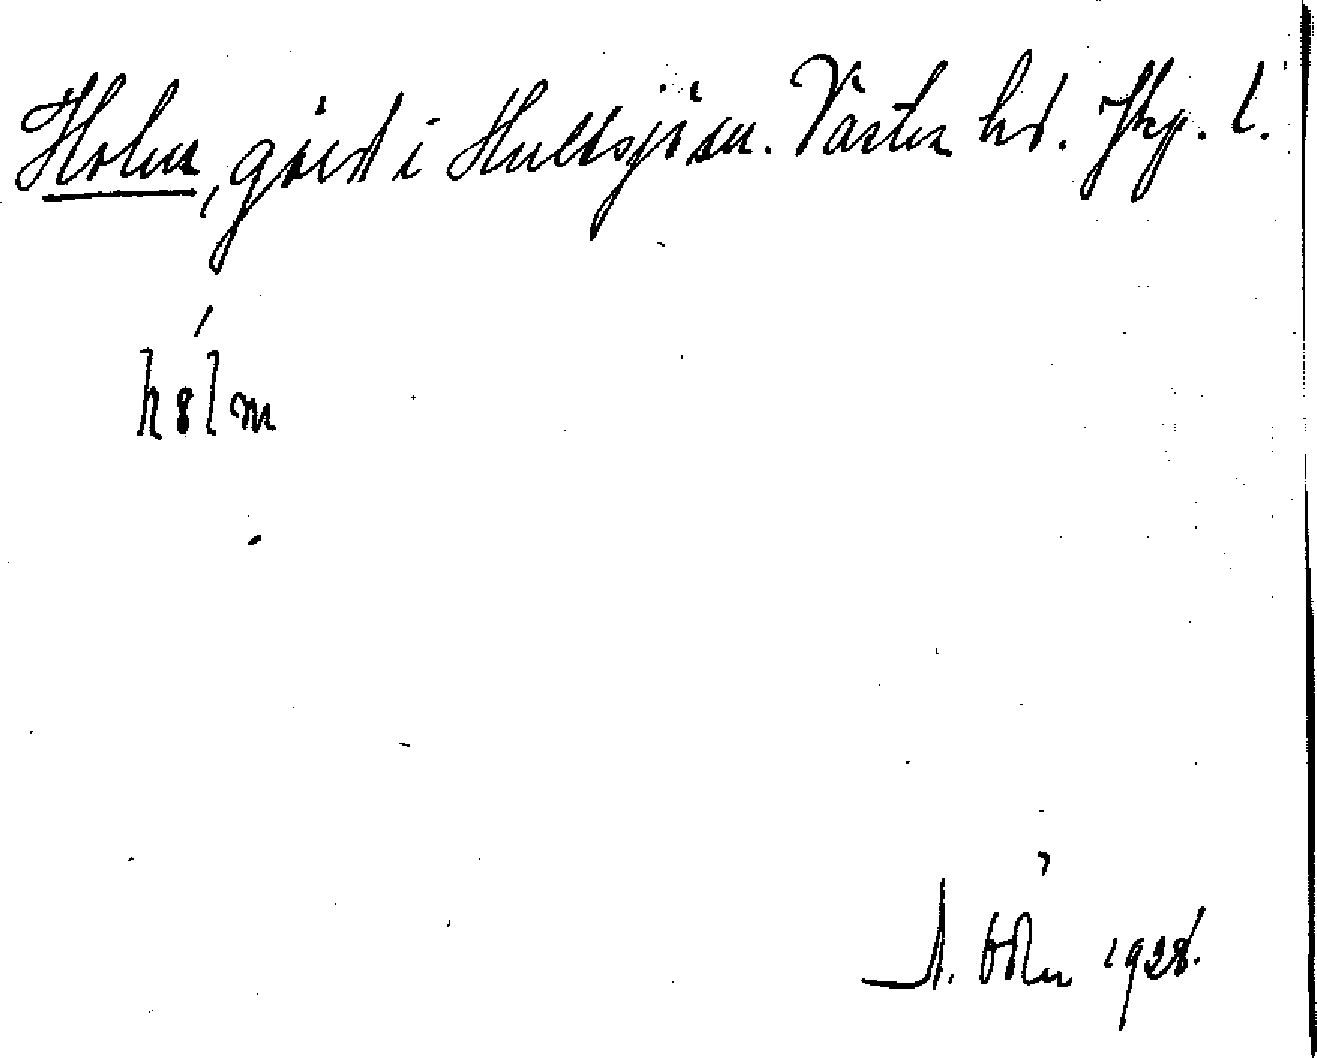 Holm, gård i Hultsjö sn. Västra hd. Jkp. l.
hȣ́lm
1928.